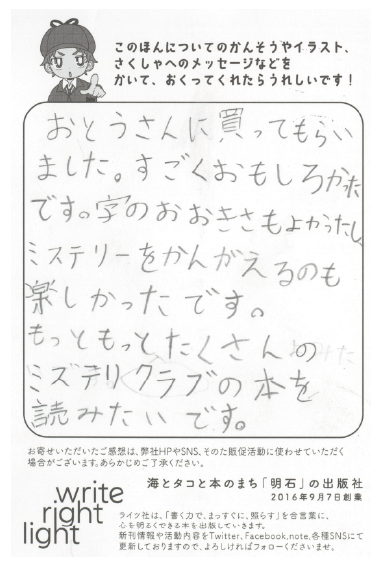 このほんについてのかんそうやイラスト、
さくしゃへのメッセージなどを
かいて、おくってくれたらうれしいです！
おとうさんに買ってもらい
ました。すごくおもしろかった
です。字のおおきさもよかったし、
ミステリーをかんがえるのも
楽しかったです。
もっともっとたくさんの
ミズテリクラブの本を
読みたいです。
お寄せいただいたご感想は、弊社HPやSNS、そのた販促活動に使わせていただく
場合がございます。あらかじめご了承ください。
海とタコと本のまち「明石」の出版社
2016年9月7日創業
write
right
light
ライツ社は、「書く力で、まっすぐに、照らす」を合言葉に、
心を明るくできる本を出版していきます。
新刊情報や活動内容をTwitter、Facebook、note、各種SNSにて
更新しておりますので、よろしければフォローくださいませ。